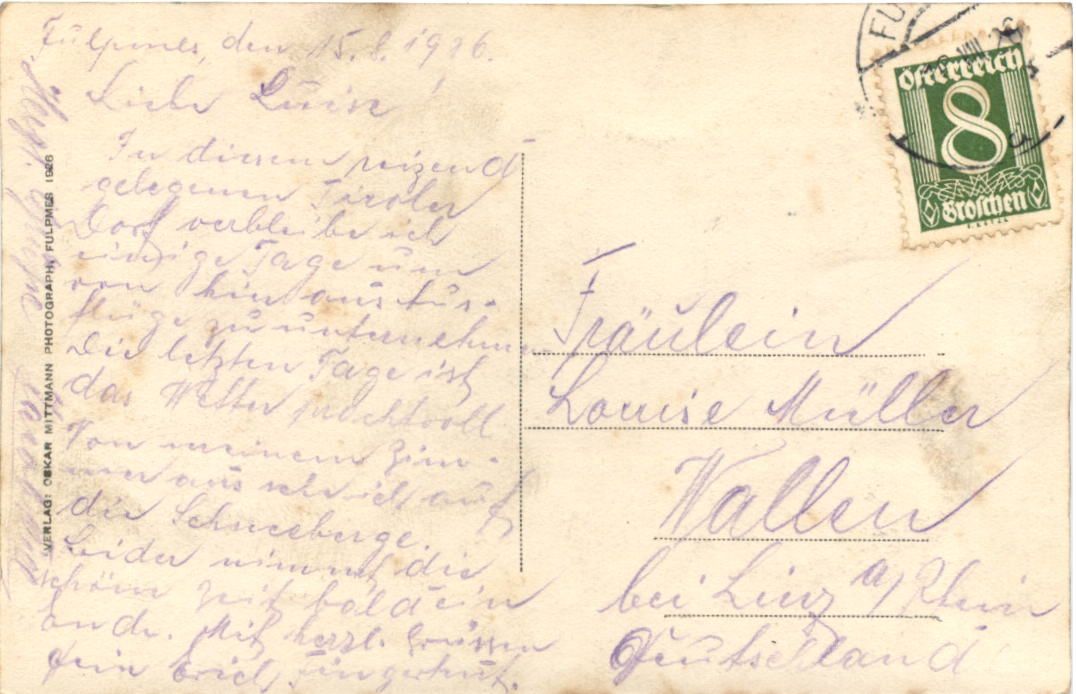 Fulpmes, den 15.8.1926.
Liebe Luise!
In diesem reizend
gelegenen Tiroler
Dorf verbleibe ich
einige Tage um
von hin aus Aus-
flüge zu unternehmen
Die letzten Tage ist
das Wetter prachtvoll
Von meinem Zim-
mer aus seh ich auf
die Schneeberge.
Leider nimmt die
schöne Zeit bald ein
Ende. Mit herzl. Grüssen
Dein Erich Fingerhut.
VERLAG: OSKAR MITTMANN PHOTOGRAPH, FULPMES 1926
FU
VIII 26
Österreich
8
Groschen
Fräulein
Louise Müller
Wallen
bei Linz a/Rhein
Deutschland